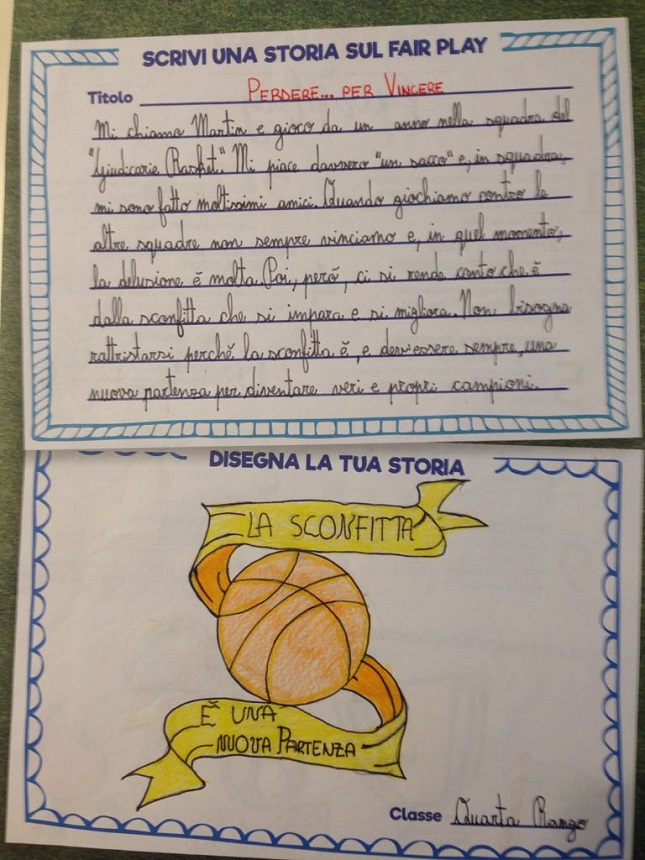 SCRIVI UNA STORIA SUL FAIR PLAY
Titolo PERDERE... PER VINCERE
Mi chiamo Martin e gioco da un anno nella squadra del
"Giudicarie Basket." Mi piace davvero "un sacco" e, in squadra,
mi sono fatto moltissimi amici. Quando giochiamo contro le
altre squadre non sempre vinciamo e, in quel momento,
la delusione è molta. Poi, però, ci si rende conto che è
dalla sconfitta che si impara e si migliora. Non bisogna
rattristarsi perchè la sconfitta è, e dev'essere sempre, una
nuova partenza per diventare veri e propri campioni.
DISEGNA LA TUA STORIA
LA SCONFITTA
È UNA
NUOVA PARTENZA
Classe Quarta Ranzo